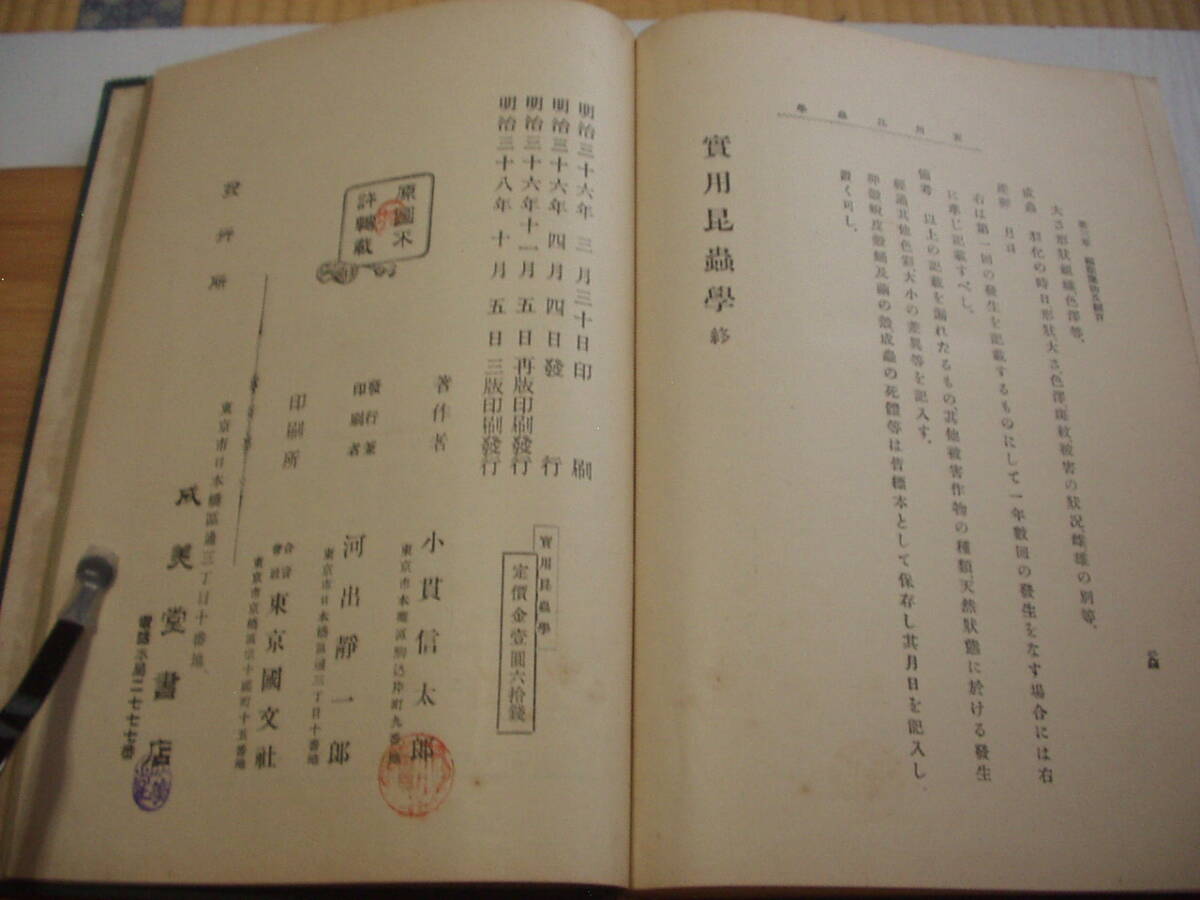 實用昆蟲學
大さ形狀組織色澤等、
成蟲 羽化の時日形狀大さ、色澤斑紋被害の狀況、雌雄の別等、
產卵 月日
右は第一回の發生を記載するものにして一年數回の發生をなす場合には右
に準じ記載すべし、
備考 以上の記載を漏れたるもの其他被害作物の種類天然狀態に於ける發生
經過其他色彩大小の差異等を記入す、
卵殼蛻皮殼蛹及繭の殼成蟲の死體等は皆標本として保存し其月日を記入し
置く可し、
實用昆蟲學 終
明治三十六年三月三十日印刷
明治三十六年四月四日發行
明治三十六年十一月五日再版印刷發行
明治三十八年十月五日三版印刷發行
實用昆蟲學
定價金壹圓六拾錢
原圖不
許轉載
著作者
小貫信太郎
發行兼
印刷者
東京市日本橋區通三丁目十番地
河出靜一郎
印刷所
合資
會社
東京國文社
發行所
東京市日本橋區通三丁目十番地、
成美堂書店